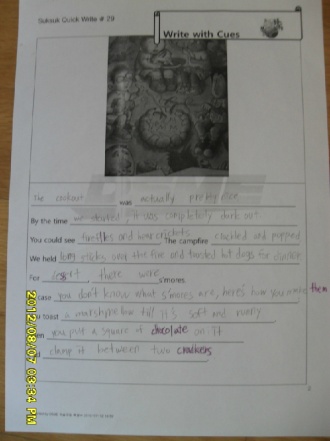 Suksuk Quick Write # 29
Write with Cues
The cookout was actually pretty
By the time we started, it was completely dark out
You could see fireflies and hear crickets The campfire crackled and popped
We held long sticks over the fire and toasted hot dogs for dinner
For dessert, there were s'mores
case you don't know what s'mores are, here's how you make them
toast a marshmallow till it's soft and
you put a square of chocolate on it
clamp it between two crackers
2012/08/07 03:34 PM